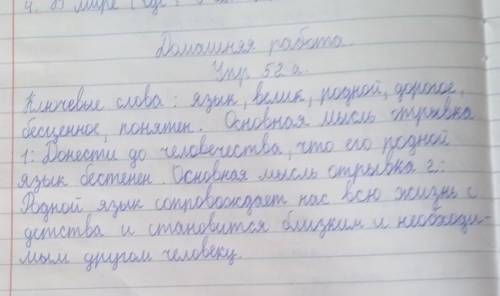 4. В мире
Домашняя работа.
Упр 52 а.
Ключевые слова: язык, велик, родной, дорогое,
бесценное, понятен. Основная мысль отрывка
1: Донести до человечества, что его родной
язык бестенен. Основная мысль отрывка 2:
Родной язык сопровождает нас всю жизнь с
детства и становится близким и необходи-
мым другом человеку.